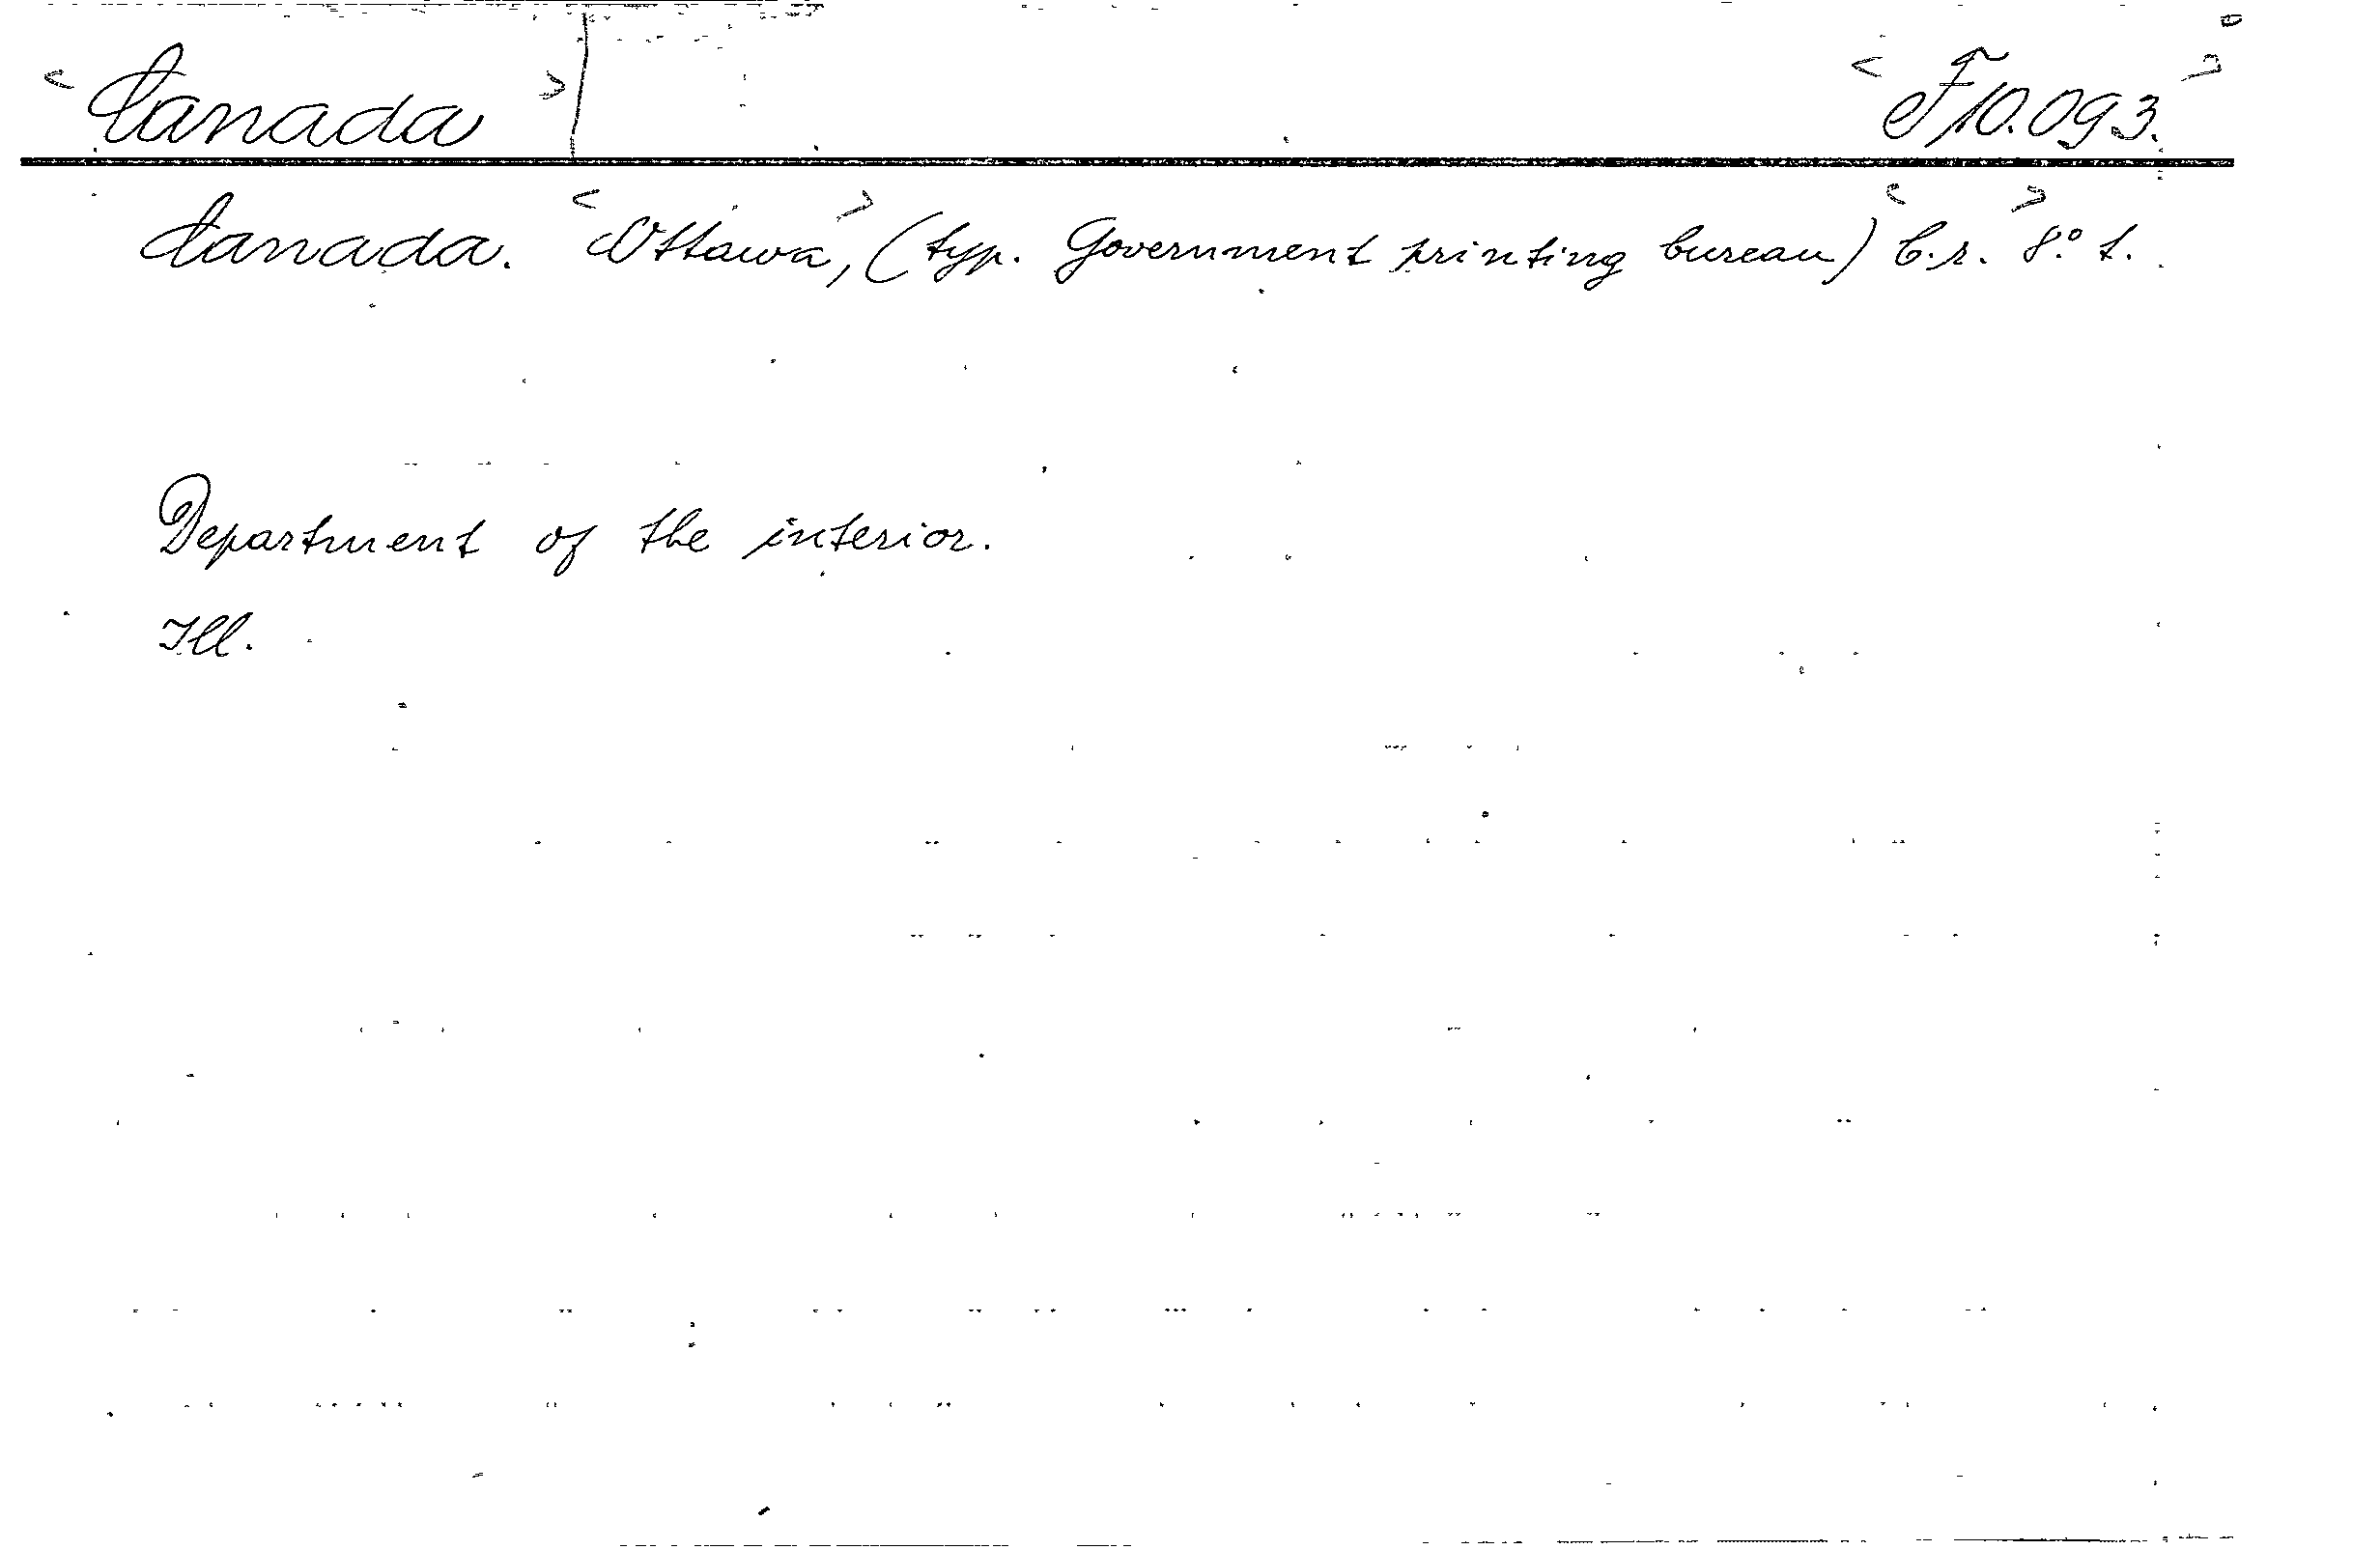 <Canada> <F10.093.>
Canada. <Ottawa>, (typ. Government printing bureau) <b.r.> 8.° t.
Department of the interior.
Ill.